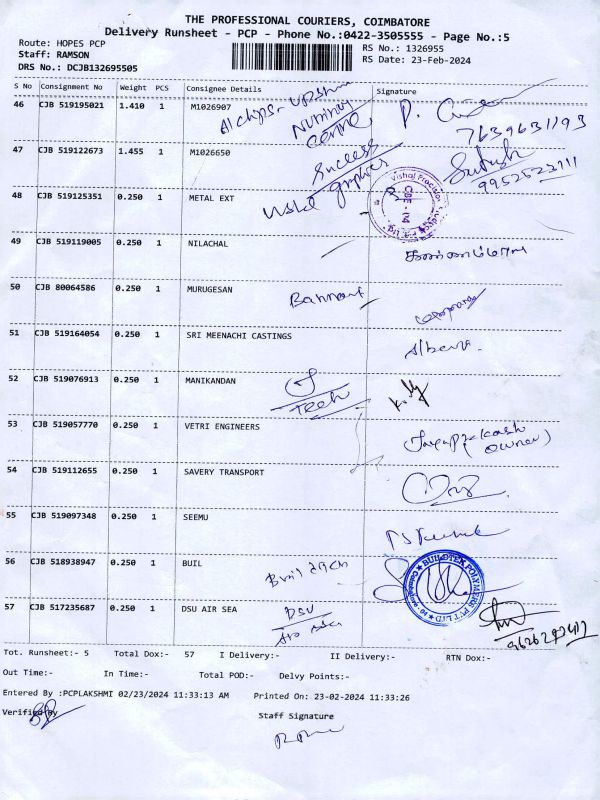 THE PROFESSIONAL COURIERS, COIMBATORE
Delivery Runsheet - PCP - Phone No.:0422-3505555 - Page No.:5
Route: HOPES PCP
RS No.: 1326955
Staff: RAMSON
RS Date: 23-Feb-2024
DRS No.: DCJB132695505
S No Consignment No Weight PCS Consignee Details Signature
46 CJB 519195021 1.410 1 M1026907
7639631193
47 CJB 519122673 1.455 1 M1026650 Success
graphics
9952523711
48 CJB 519125351 0.250 1 METAL EXT
49 CJB 519119005 0.250 1 NILACHAL
50 CJB 80064586 0.250 1 MURUGESAN
51 CJB 519164054 0.250 1 SRI MEENACHI CASTINGS
52 CJB 519076913 0.250 1 MANIKANDAN
Tech
53 CJB 519057770 0.250 1 VETRI ENGINEERS Jayaprakash
owner)
54 CJB 519112655 0.250 1 SAVERY TRANSPORT
55 CJB 519097348 0.250 1 SEEMU
56 CJB 518938947 0.250 1 BUIL
57 CJB 517235687 0.250 1 DSU AIR SEA DSU
Tot. Runsheet:- 5 Total Dox:- 57 I Delivery:- II Delivery:- RTN Dox:-
Out Time:- In Time:- Total POD:- Delvy Points:-
Entered By :PCPLAKSHMI 02/23/2024 11:33:13 AM Printed On: 23-02-2024 11:33:26
Verified By
Staff Signature